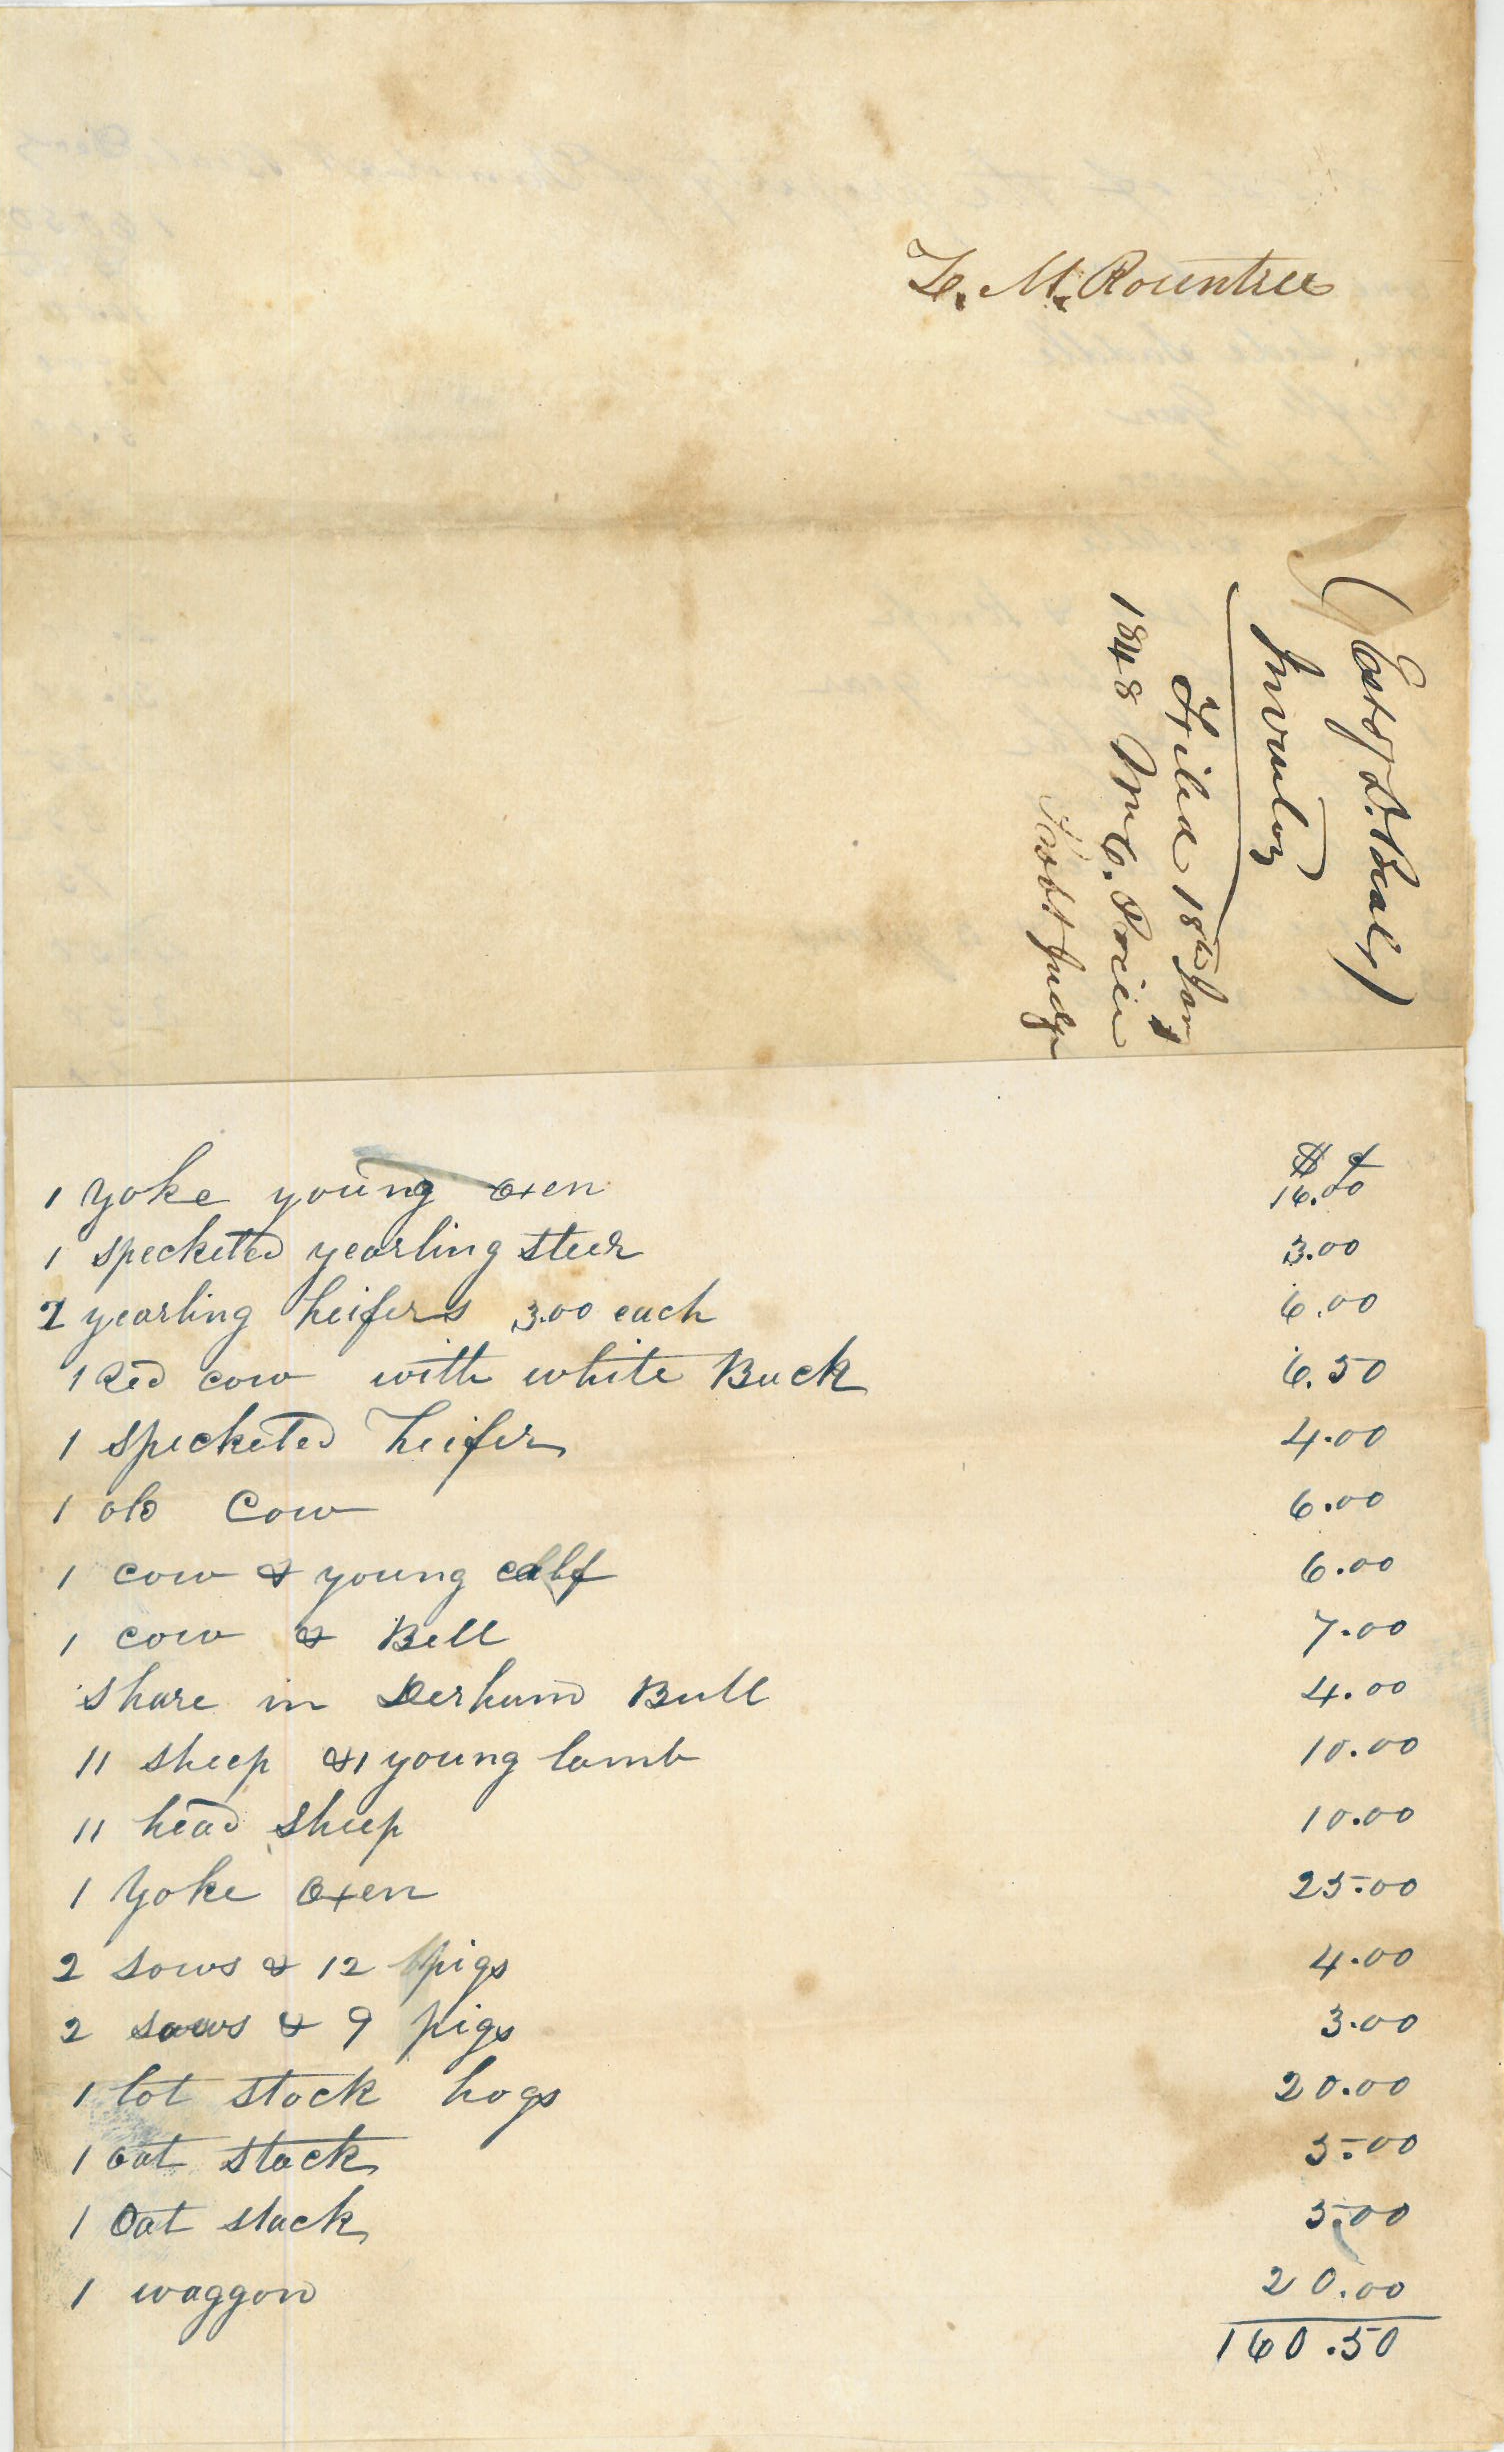 Z. M. Rountree
(Est of D. Beal)
Inventory
Filed 18th Jan
1848 M C. Price
Probt Judge
$ ¢
1 Yoke young oxen 16.00
1 specketed yearling steer 3.00
2 yearling heifers 3.00 each 6.00
1 Red cow with white Back 6.50
1 specketed heifer 4.00
1 old Cow 6.00
1 cow & young calf 6.00
1 cow & Bell 7.00
share in Derham Bull 4.00
11 sheep & 1 young lamb 10.00
11 head sheep 10.00
1 Yoke Oxen 25.00
2 sows & 12 pigs 4.00
2 sows & 9 pigs 3.00
1 lot stock hogs 20.00
1 oat stack 5.00
1 Oat stack 5.00
1 waggon 20.00
160.50